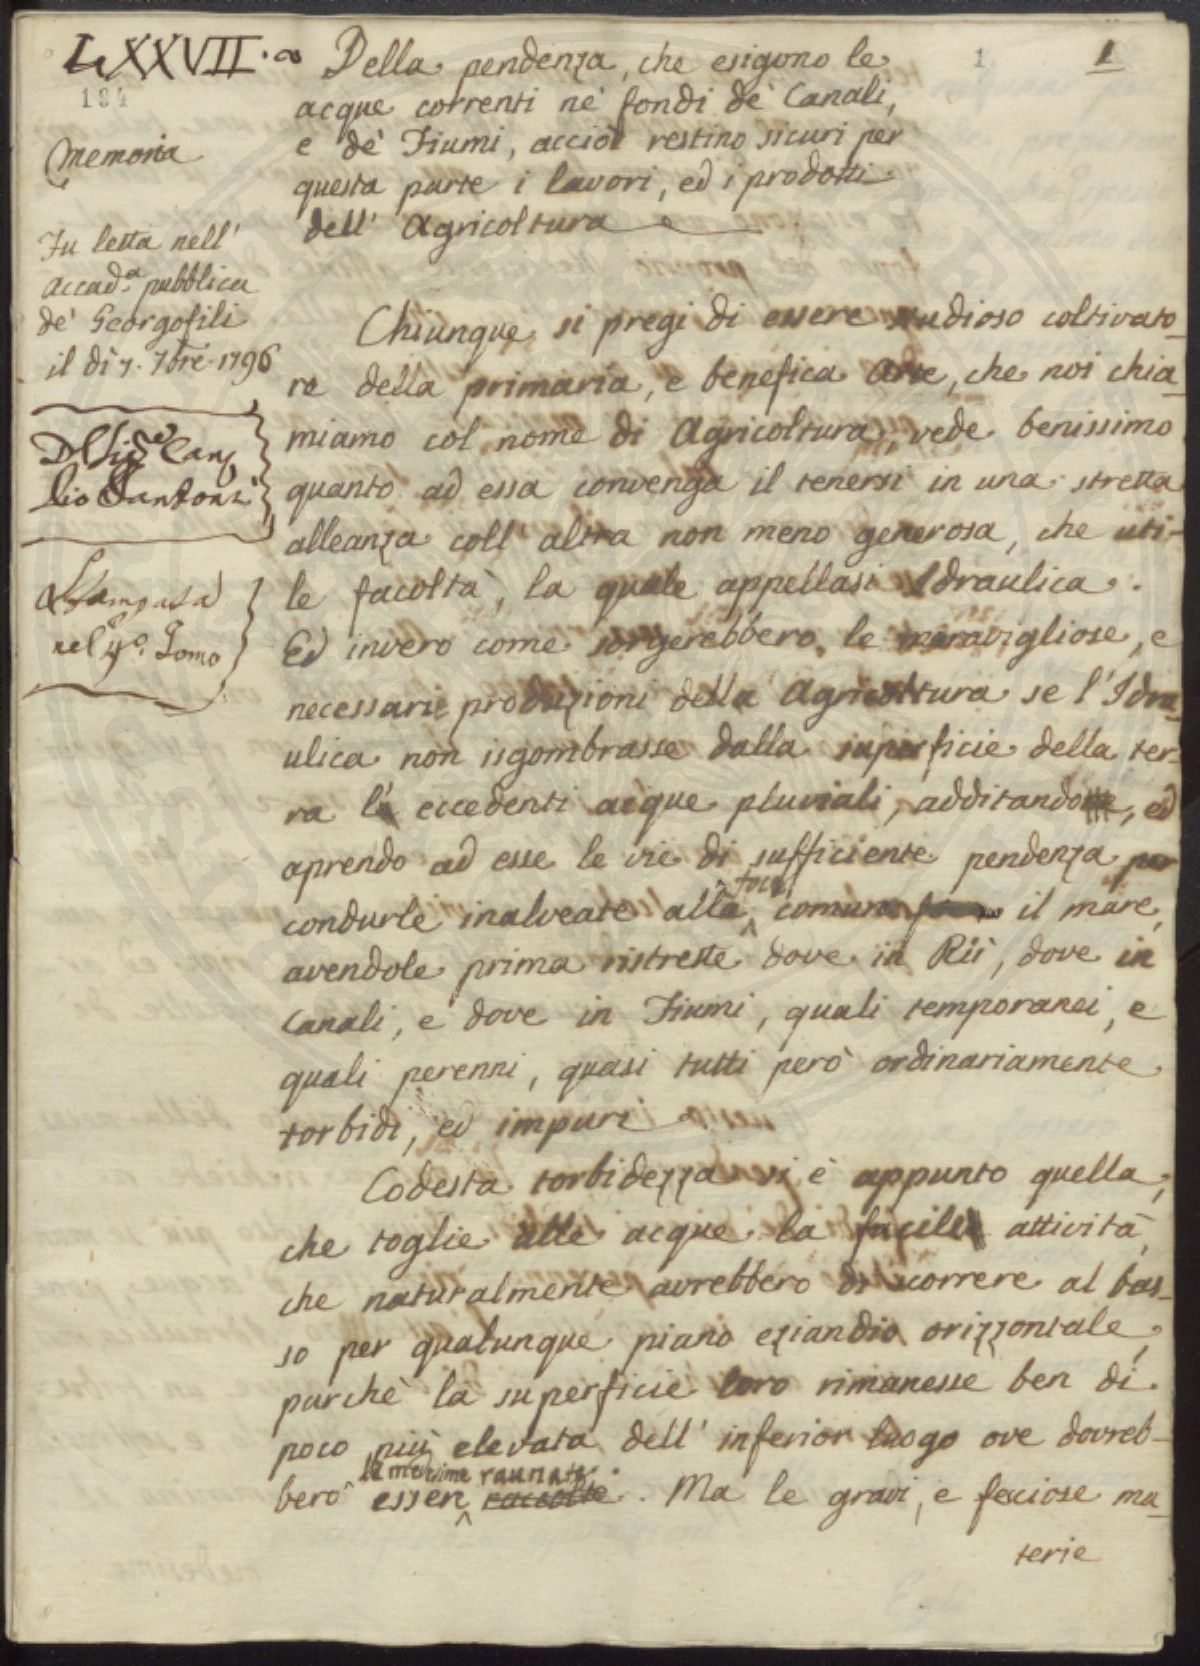 LXXVII.a
194
1
1
Della pendenza, che esigono le
acque correnti ne' fondi de' Canali,
e de' Fiumi, acciò restino sicuri per
questa parte i lavori, ed i prodotti
dell' Agricoltura
Memoria
Fu letta nell'
Accad.a pubblica
de' Georgofili
il dì 7. 7bre. 1796
Stampata
nel 4º. Tomo
Chiunque si pregi di essere studioso coltivato-
re della primaria, e benefica Arte, che noi chia-
miamo col nome di Agricoltura, vede benissimo
quanto ad essa convenga il tenersi in una stretta
alleanza coll' altra non meno generosa, che uti-
le facoltà, la quale appellasi Idraulica.
Ed invero come sorgerebbero le maravigliose, e
necessarie produzioni della Agricoltura se l'Idra-
ulica non isgombrasse dalla superficie della ter-
ra le eccedenti acque pluviali, additando, ed
aprendo ad esse le vie di sufficiente pendenza per
condurle inalveate alla foce comune il mare,
avendole prima ristrette dove in Rii, dove in
Canali, e dove in Fiumi, quali temporanei, e
quali perenni, quasi tutti però ordinariamente
torbidi, ed impuri
Codesta torbidezza si è appunto quella,
che toglie alle acque la facile attività,
che naturalmente avrebbero di scorrere al bas-
so per qualunque piano eziandio orizzontale,
purchè la superficie loro rimanesse ben di
poco più elevata dell' inferior luogo ove dovreb-
bero le medesime raunate
esser raccolte. Ma le gravi, e fecciose ma-
terie